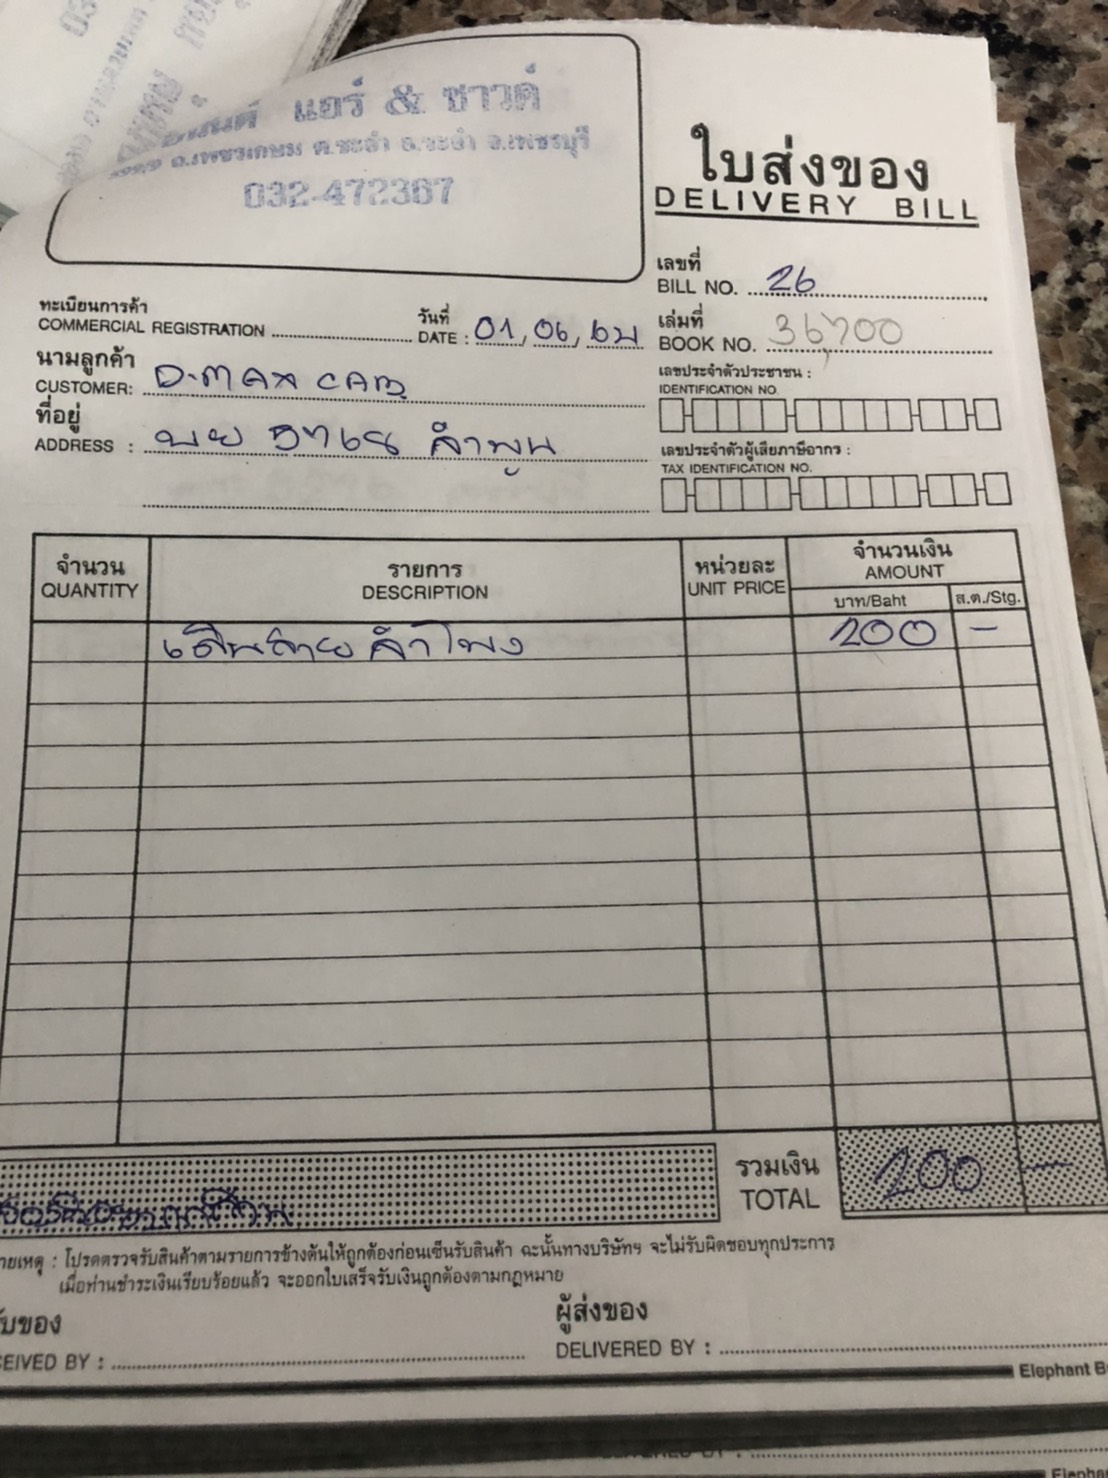 แอร์ & ซาวด์
ถ.เพชรเกษม ต.ชะอำ อ.ชะอำ จ.เพชรบุรี
032-472367
ใบส่งของ
DELIVERY BILL
เลขที่
BILL NO. 26
ทะเบียนการค้า
COMMERCIAL REGISTRATION
วันที่
DATE : 01, 06, 62
เล่มที่
BOOK NO. 36,700
นามลูกค้า
CUSTOMER: D-MAX CAB
เลขประจำตัวประชาชน :
IDENTIFICATION NO.
ที่อยู่
ADDRESS : ลำพูน
เลขประจำตัวผู้เสียภาษีอากร :
TAX IDENTIFICATION NO.
จำนวน รายการ หน่วยละ จำนวนเงิน
QUANTITY DESCRIPTION UNIT PRICE AMOUNT
บาท/Baht ส.ต./Stg.
เดินสาย ลำโพง 200 -
รวมเงิน
TOTAL 200 -
โปรดตรวจรับสินค้าตามรายการข้างต้นให้ถูกต้องก่อนเซ็นรับสินค้า ฉะนั้นทางบริษัทฯ จะไม่รับผิดชอบทุกประการ
เมื่อท่านชำระเงินเรียบร้อยแล้ว จะออกใบเสร็จรับเงินถูกต้องตามกฎหมาย
ผู้ส่งของ
BY :
DELIVERED BY :
Elephant